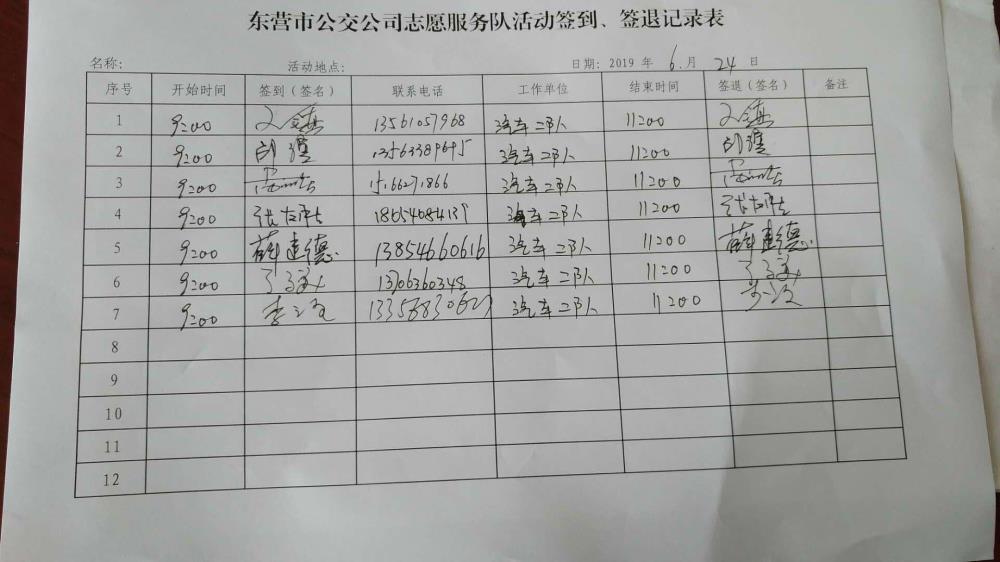 东营市公交公司志愿服务队活动签到、签退记录表
名称: 活动地点: 日期: 2019 年 6 月 24 日
序号 开始时间 签到(签名) 联系电话 工作单位 结束时间 签退(签名) 备注
1 9:00 13561057968 汽车二队 11:00
2 9:00 13563389695 汽车二队 11:00
3 9:00 汽车二队 11:00
4 9:00 汽车二队 11:00
5 9:00 薛建德 13854660616 汽车二队 11:00 薛建德
6 9:00 13706360348 汽车二队 11:00
7 9:00 汽车二队 11:00
8
9
10
11
12